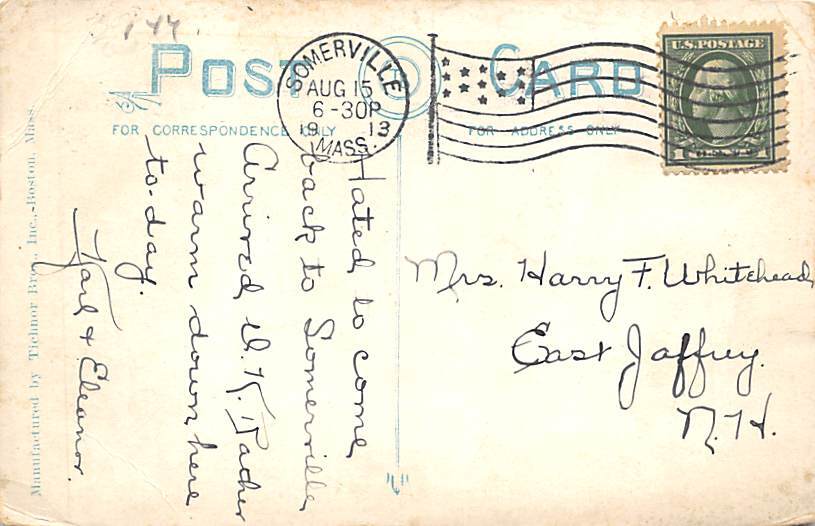 144
POST CARD
FOR CORRESPONDENCE ONLY
FOR ADDRESS ONLY
SOMERVILLE
AUG 15
6-30P
19 13
MASS.
U.S. POSTAGE
1
1
Hated to come
back to Somerville
Arrived O.K. Rather
warm down here
to-day.
Karl & Eleanor.
Mrs. Harry F. Whitehead
East Jaffrey.
N.H.
Manufactured by Tichnor Bros., Inc., - Boston, Mass.